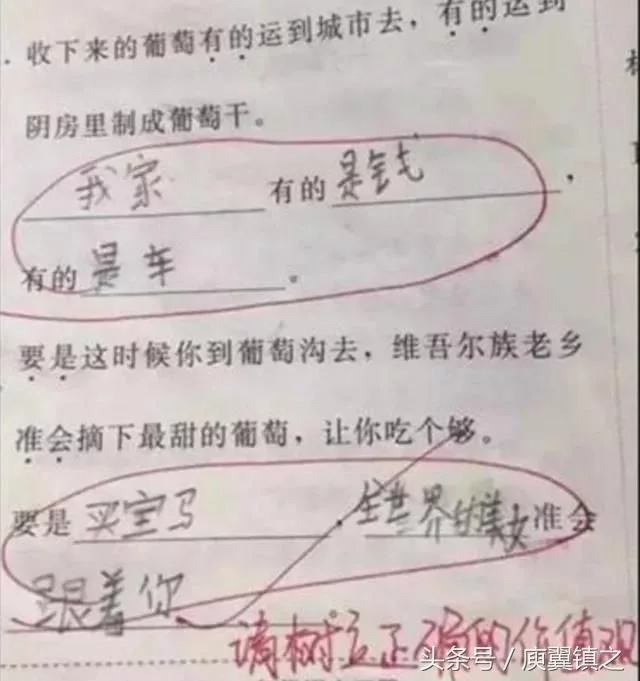 ．收下来的葡萄有的运到城市去，有的运到
阴房里制成葡萄干。
我家 有的是钱，
有的是车。
要是这时候你到葡萄沟去，维吾尔族老乡
准会摘下最甜的葡萄，让你吃个够。
要是买宝马，全世界的美女准会
跟着你
请树立正确的价值观
头条号/庾翼镇之